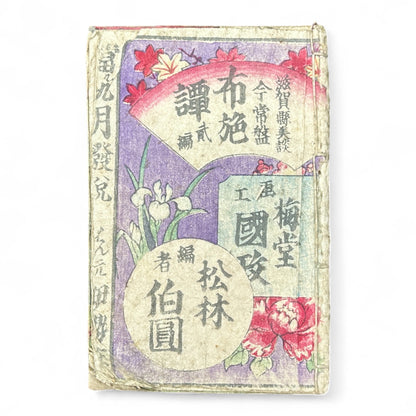 滋賀縣美談
今常盤
布施譚
貳編
梅堂
國政
画工
編者
松林
伯圓
九月發兌
はん元